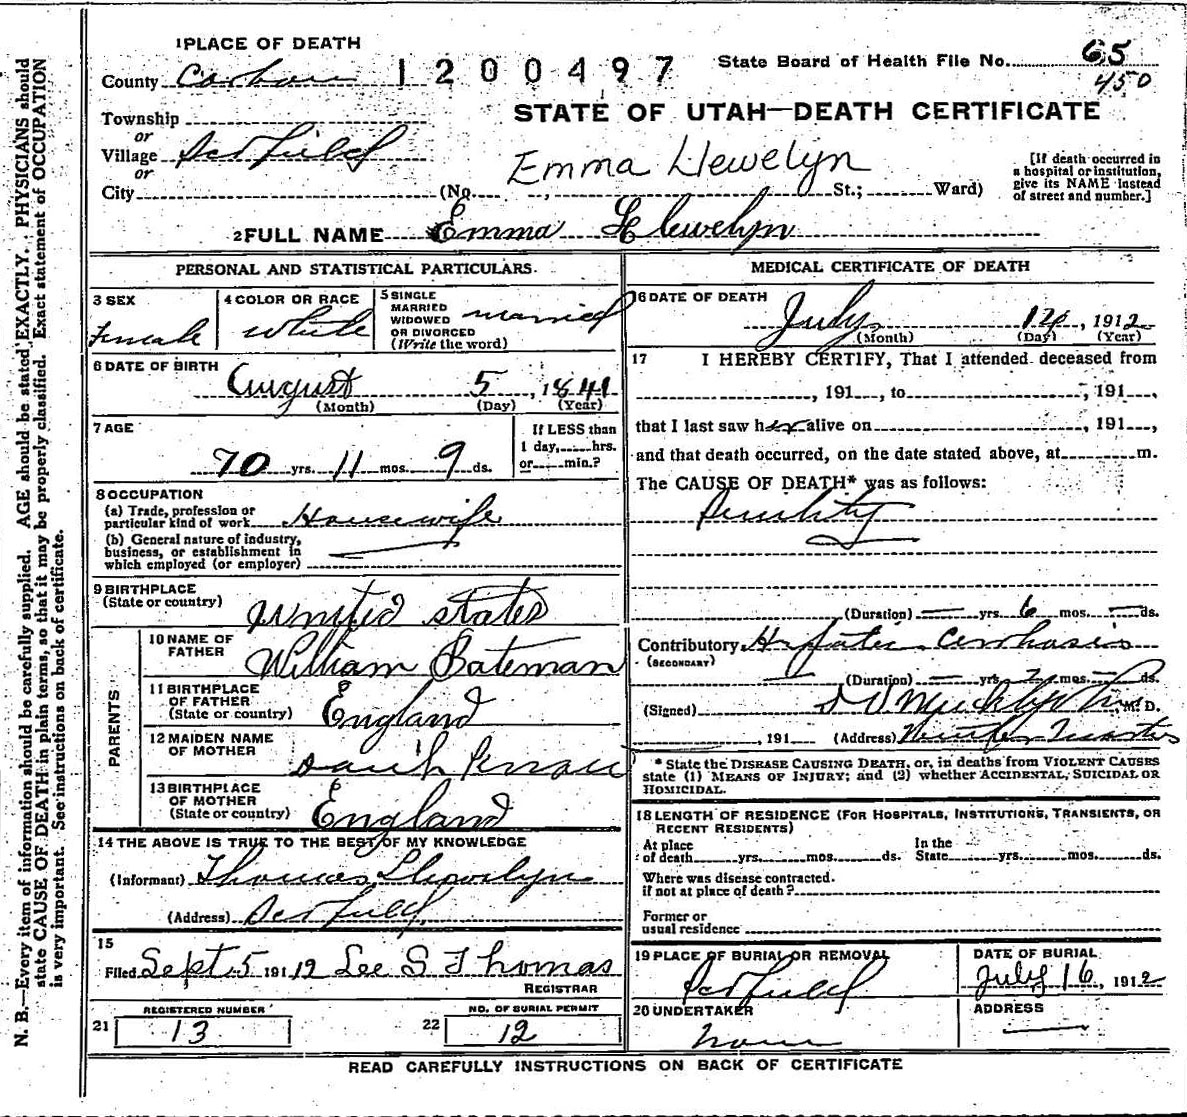 1 PLACE OF DEATH
County Carbon 1200497 State Board of Health File No. 65
450
STATE OF UTAH—DEATH CERTIFICATE
Township
or
Village Scofield
or
City (No. , St.; Ward)
Emma Llewelyn
[If death occurred in a hospital or institution, give its NAME instead of street and number.]
2 FULL NAME Emma Llewelyn
PERSONAL AND STATISTICAL PARTICULARS.
3 SEX
Female
4 COLOR OR RACE
White
5 SINGLE
MARRIED
WIDOWED
OR DIVORCED
(Write the word)
married
6 DATE OF BIRTH
August 5, 1841
(Month) (Day) (Year)
7 AGE
70 yrs. 11 mos. 9 ds.
If LESS than
1 day, hrs.
or min.?
8 OCCUPATION
(a) Trade, profession or
particular kind of work Housewife
(b) General nature of industry,
business, or establishment in
which employed (or employer)
9 BIRTHPLACE
(State or country) United States
PARENTS
10 NAME OF
FATHER William Bateman
11 BIRTHPLACE
OF FATHER
(State or country) England
12 MAIDEN NAME
OF MOTHER
13 BIRTHPLACE
OF MOTHER
(State or country) England
14 THE ABOVE IS TRUE TO THE BEST OF MY KNOWLEDGE
(Informant) Thomas Llewelyn
(Address) Scofield
15
Filed Sept 5 1912 Lee S Thomas
REGISTRAR
21 REGISTERED NUMBER
13
22 NO. OF BURIAL PERMIT
12
MEDICAL CERTIFICATE OF DEATH
16 DATE OF DEATH
July , 1912
(Month) (Day) (Year)
17 I HEREBY CERTIFY, That I attended deceased from
, 191 , to , 191 ,
that I last saw her alive on , 191 ,
and that death occurred, on the date stated above, at m.
The CAUSE OF DEATH* was as follows:
Senility
(Duration) — yrs. 6 mos. — ds.
Contributory
(SECONDARY)
(Duration) — yrs. 2 mos. — ds.
(Signed) , M. D.
, 191 (Address) Winter Quarters
* State the DISEASE CAUSING DEATH, or, in deaths from VIOLENT CAUSES
state (1) MEANS OF INJURY; and (2) whether ACCIDENTAL, SUICIDAL OR
HOMICIDAL.
18 LENGTH OF RESIDENCE (FOR HOSPITALS, INSTITUTIONS, TRANSIENTS, OR
RECENT RESIDENTS)
At place
of death yrs. mos. ds.
In the
State yrs. mos. ds.
Where was disease contracted.
if not at place of death?
Former or
usual residence
19 PLACE OF BURIAL OR REMOVAL
Scofield
DATE OF BURIAL
July 16, 1912
20 UNDERTAKER
none
ADDRESS
READ CAREFULLY INSTRUCTIONS ON BACK OF CERTIFICATE
N. B.—Every item of information should be carefully supplied. AGE should be stated EXACTLY. PHYSICIANS should
state CAUSE OF DEATH in plain terms, so that it may be properly classified. Exact statement of OCCUPATION
is very important. See instructions on back of certificate.